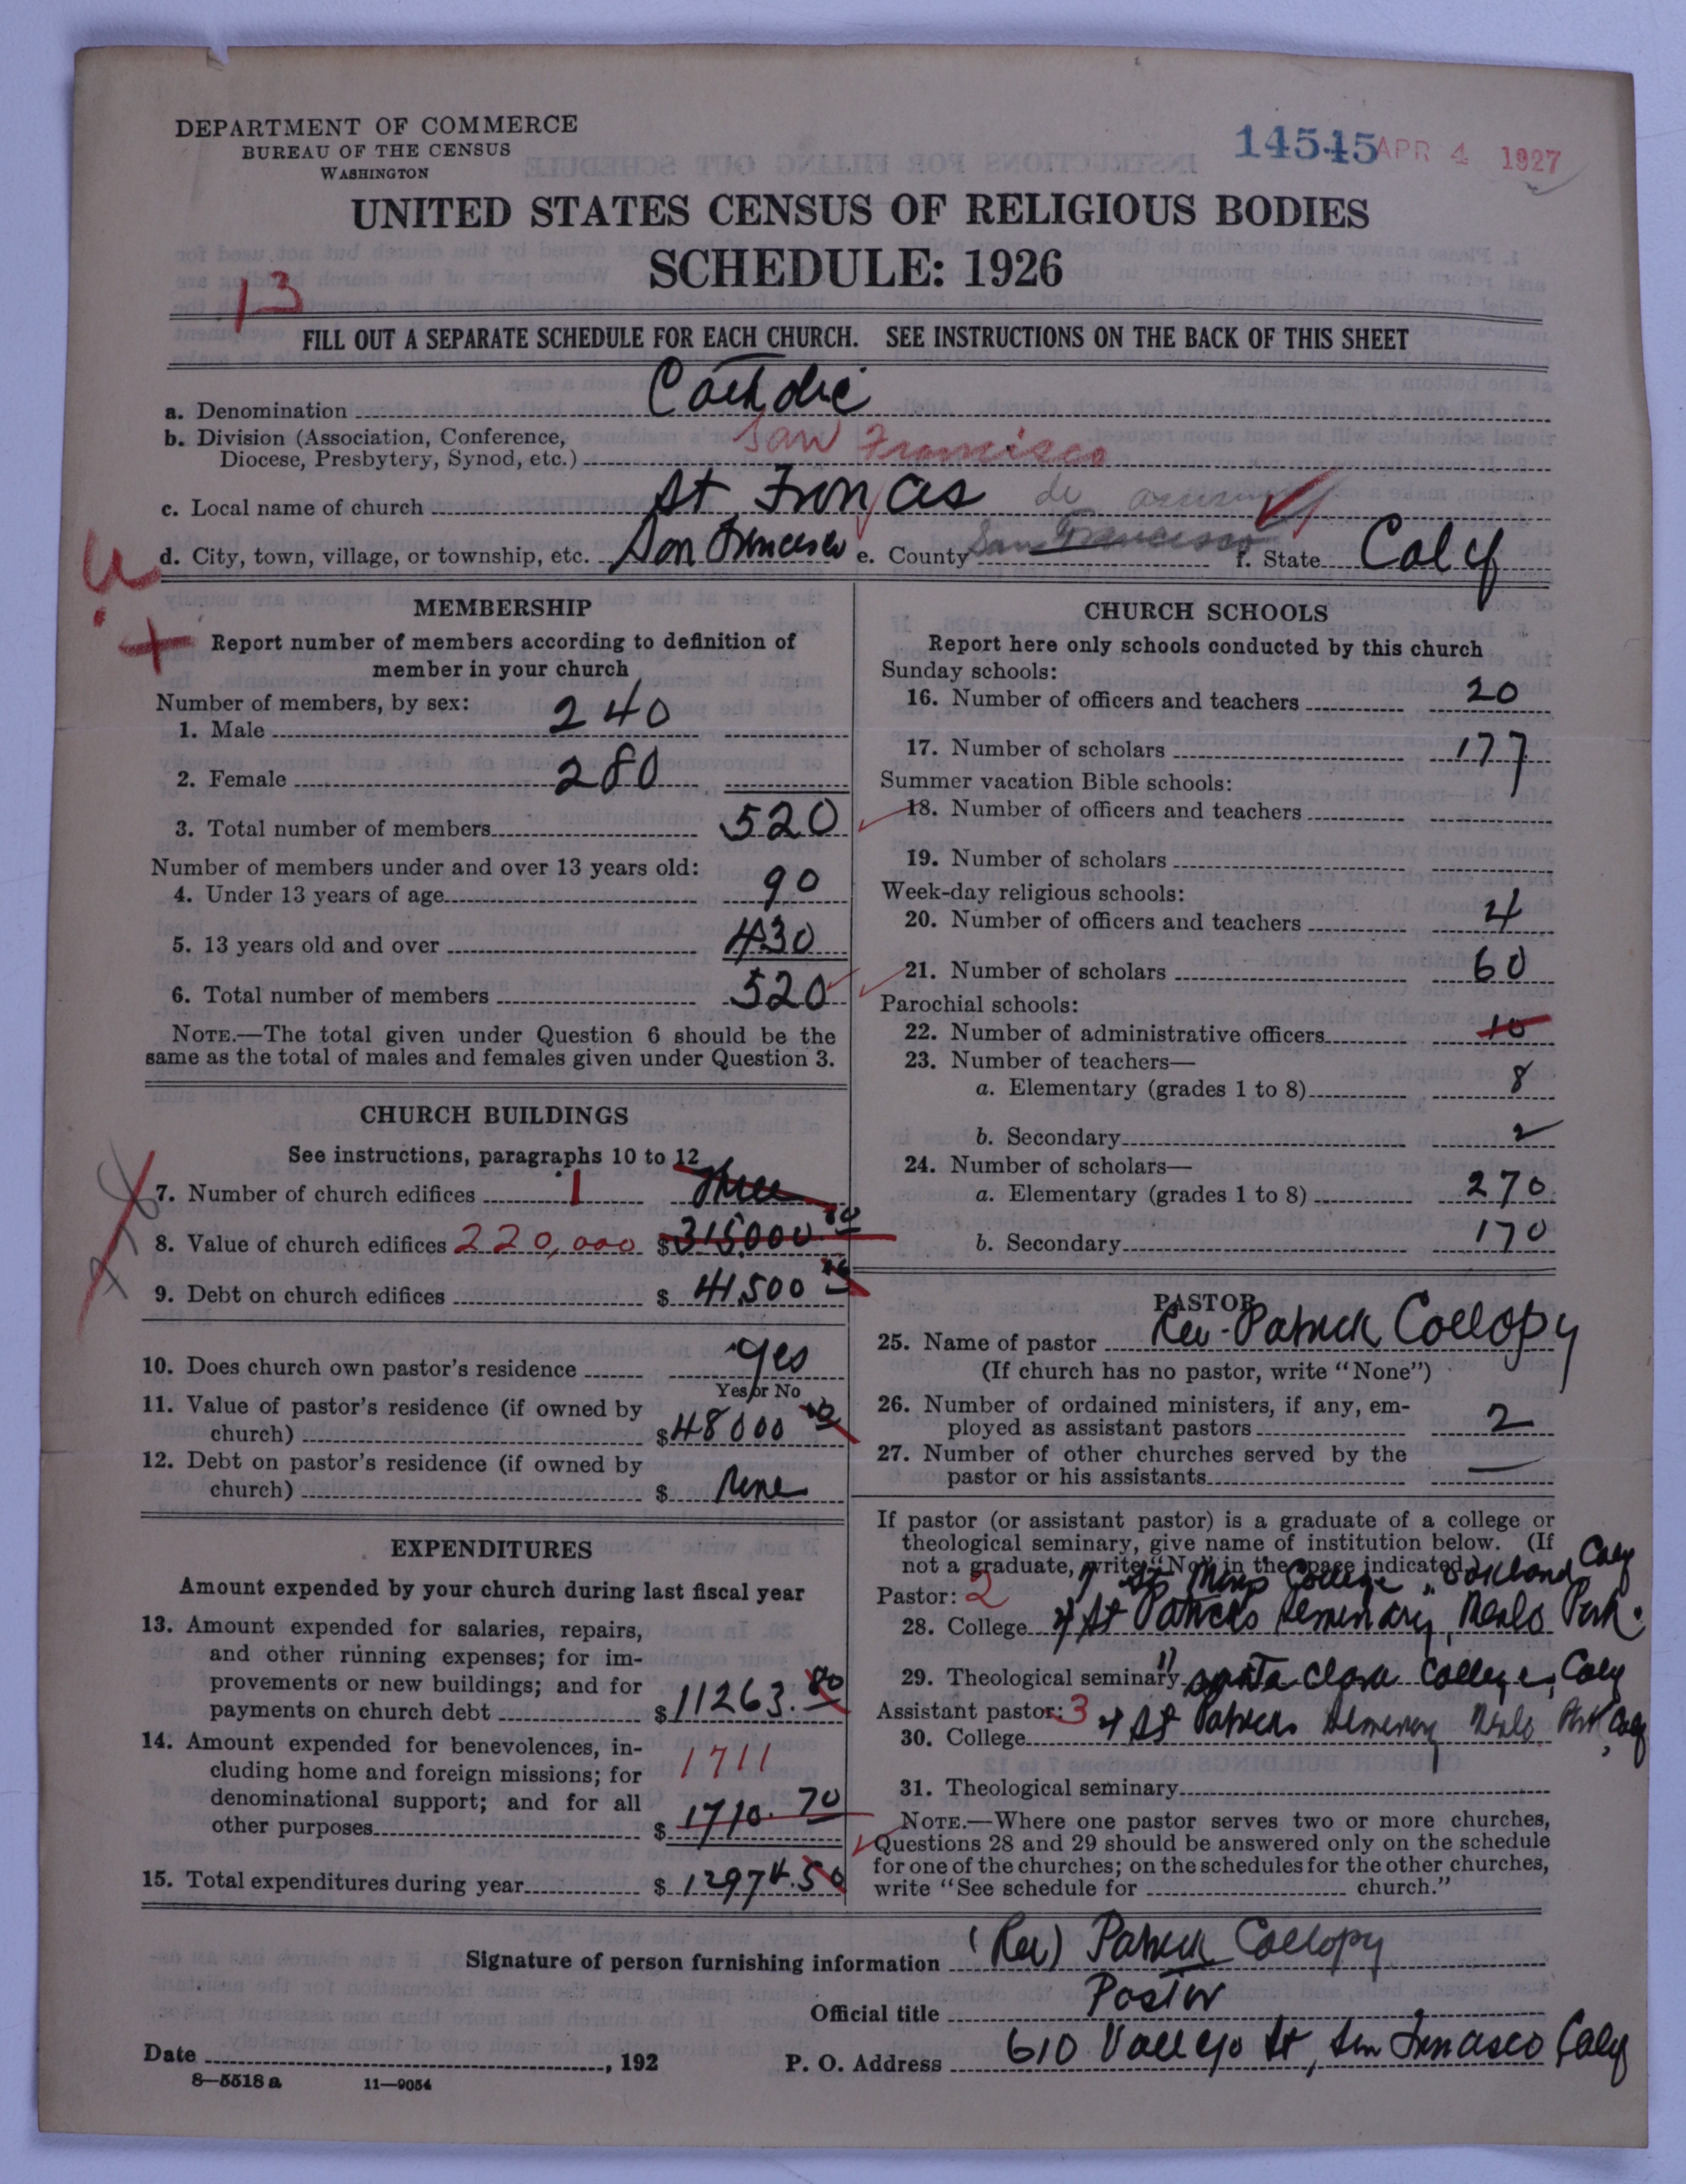 DEPARTMENT OF COMMERCE
BUREAU OF THE CENSUS
WASHINGTON
14545 APR 4 1927
UNITED STATES CENSUS OF RELIGIOUS BODIES
SCHEDULE: 1926
13
FILL OUT A SEPARATE SCHEDULE FOR EACH CHURCH. SEE INSTRUCTIONS ON THE BACK OF THIS SHEET
a. Denomination Catholic
b. Division (Association, Conference,
Diocese, Presbytery, Synod, etc.) San Francisco
c. Local name of church St Francis
d. City, town, village, or township, etc. San Francisco e. County San Francisco f. State Calif
MEMBERSHIP
Report number of members according to definition of
member in your church
Number of members, by sex:
1. Male 240
2. Female 280
3. Total number of members 520
Number of members under and over 13 years old:
4. Under 13 years of age 90
5. 13 years old and over 430
6. Total number of members 520
NOTE.—The total given under Question 6 should be the
same as the total of males and females given under Question 3.
CHURCH BUILDINGS
See instructions, paragraphs 10 to 12
7. Number of church edifices 1 three
8. Value of church edifices 220,000 $315,000.00
9. Debt on church edifices $ 41,500
10. Does church own pastor's residence yes
Yes or No
11. Value of pastor's residence (if owned by
church) $48000 00
12. Debt on pastor's residence (if owned by
church) $ None
EXPENDITURES
Amount expended by your church during last fiscal year
13. Amount expended for salaries, repairs,
and other running expenses; for im-
provements or new buildings; and for
payments on church debt $11263.80
14. Amount expended for benevolences, in-
cluding home and foreign missions; for
denominational support; and for all
other purposes 1711 $ 1710.70
15. Total expenditures during year $ 12974.50
CHURCH SCHOOLS
Report here only schools conducted by this church
Sunday schools:
16. Number of officers and teachers 20
17. Number of scholars 177
Summer vacation Bible schools:
18. Number of officers and teachers
19. Number of scholars
Week-day religious schools:
20. Number of officers and teachers 4
21. Number of scholars 60
Parochial schools:
22. Number of administrative officers 10
23. Number of teachers—
a. Elementary (grades 1 to 8) 8
b. Secondary 2
24. Number of scholars—
a. Elementary (grades 1 to 8) 270
b. Secondary 170
PASTOR
25. Name of pastor Rev. Patrick Collopy
(If church has no pastor, write "None")
26. Number of ordained ministers, if any, em-
ployed as assistant pastors 2
27. Number of other churches served by the
pastor or his assistants
If pastor (or assistant pastor) is a graduate of a college or
theological seminary, give name of institution below. (If
not a graduate, write "No" in the space indicated.)
College, Oakland Calif
Pastor: 2
28. College St Patricks Seminary, Menlo Park.
29. Theological seminary Santa Clara College, Calif
Assistant pastor: 3
30. College St Patricks Seminary Menlo Park, Calif
31. Theological seminary
NOTE.—Where one pastor serves two or more churches,
Questions 28 and 29 should be answered only on the schedule
for one of the churches; on the schedules for the other churches,
write "See schedule for church."
Signature of person furnishing information (Rev) Patrick Collopy
Official title Pastor
Date , 192 P. O. Address 610 Vallejo St, San Francisco Calif
8—5518 a 11—9054